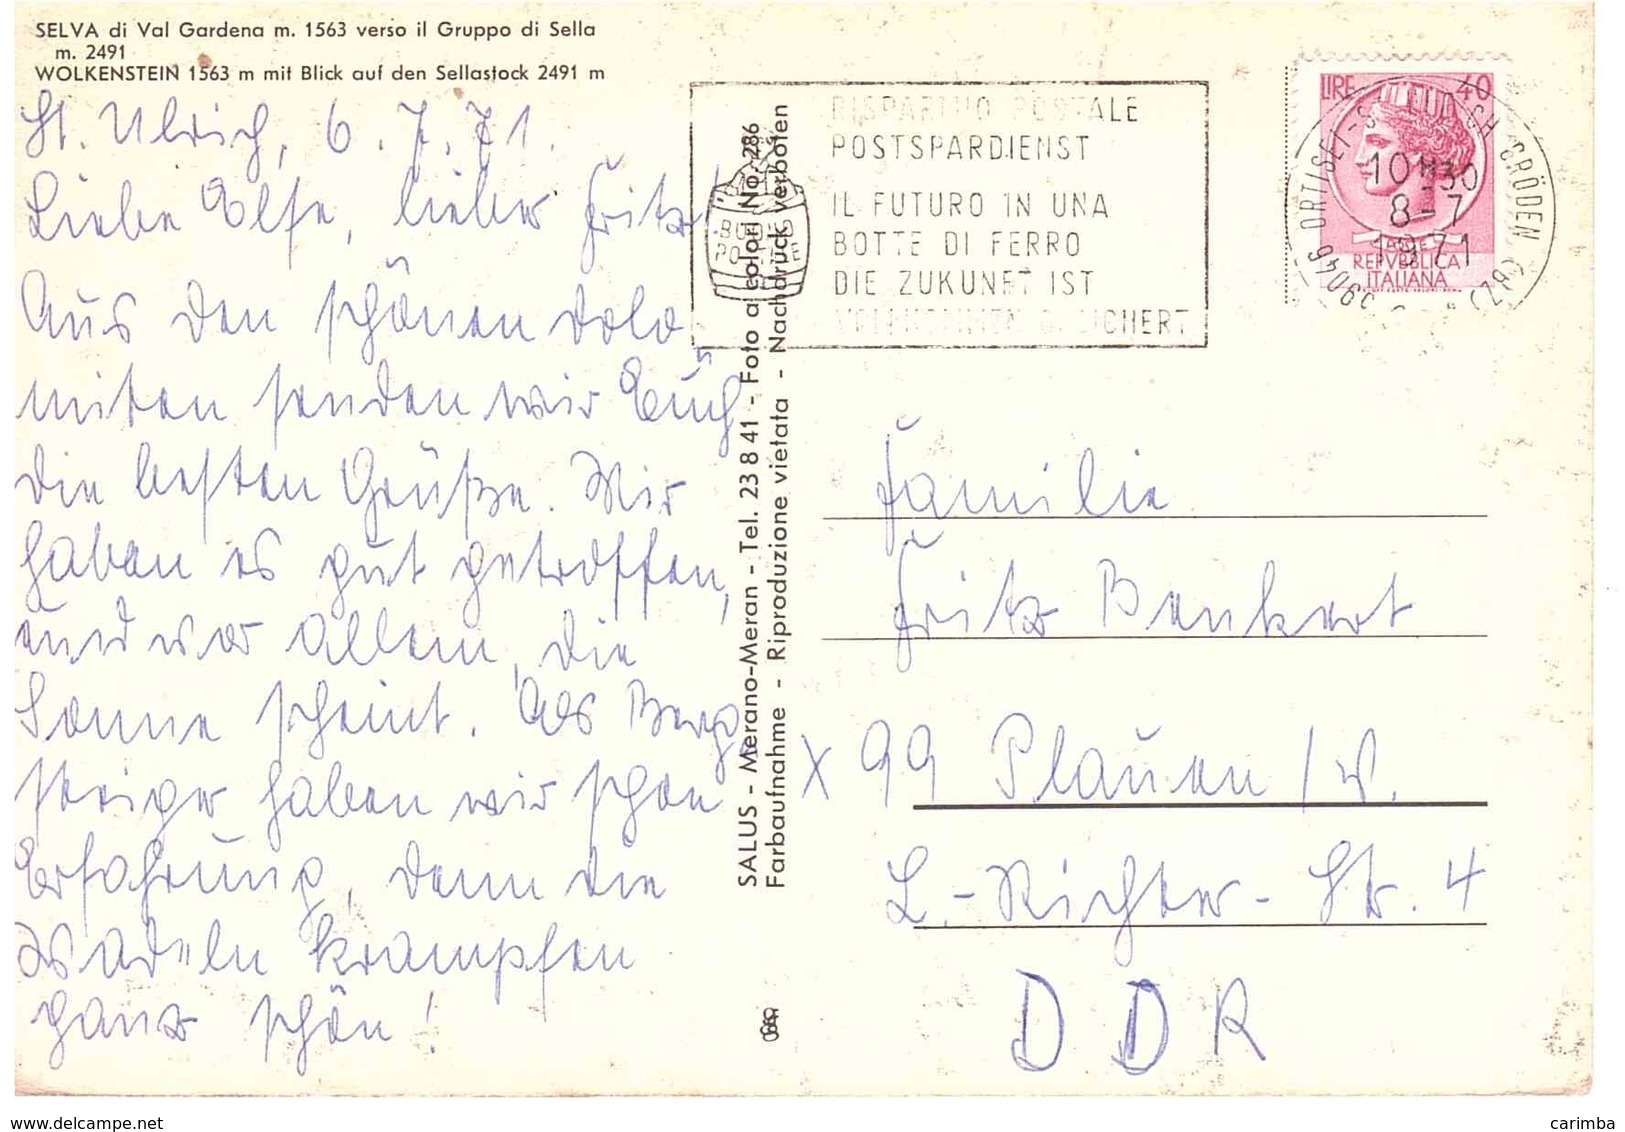 SELVA di Val Gardena m. 1563 verso il Gruppo di Sella
m. 2491
WOLKENSTEIN 1563 m mit Blick auf den Sellastock 2491 m
St. Ulrich, 6.7.71.
Liebe Else, lieber Fritz!
Aus den schönen Dolo
miten senden wir Euch
die besten Grüße. Wir
haben es gut getroffen,
und vor allem, die
Sonne scheint. Als Berg
steiger haben wir schon
Erfahrung, denn die
Wadeln krampfen
ganz schön!
SALUS - Merano-Meran - Tel. 23 8 41 - Foto a colori No. 286
Farbaufnahme - Riproduzione vietata - Nachdruck verboten
RISPARMIO POSTALE
POSTSPARDIENST
IL FUTURO IN UNA
BOTTE DI FERRO
DIE ZUKUNFT IST
BUONO
POSTALE
LIRE 40
REPVBBLICA
ITALIANA
39046 ORTISEI-ST. ULRICH GRÖDEN (BZ)
10 30
8-7
1971
Familie
Fritz Benkert
X 99 Plauen / V.
L.-Richter-Str. 4
DDR
carimba